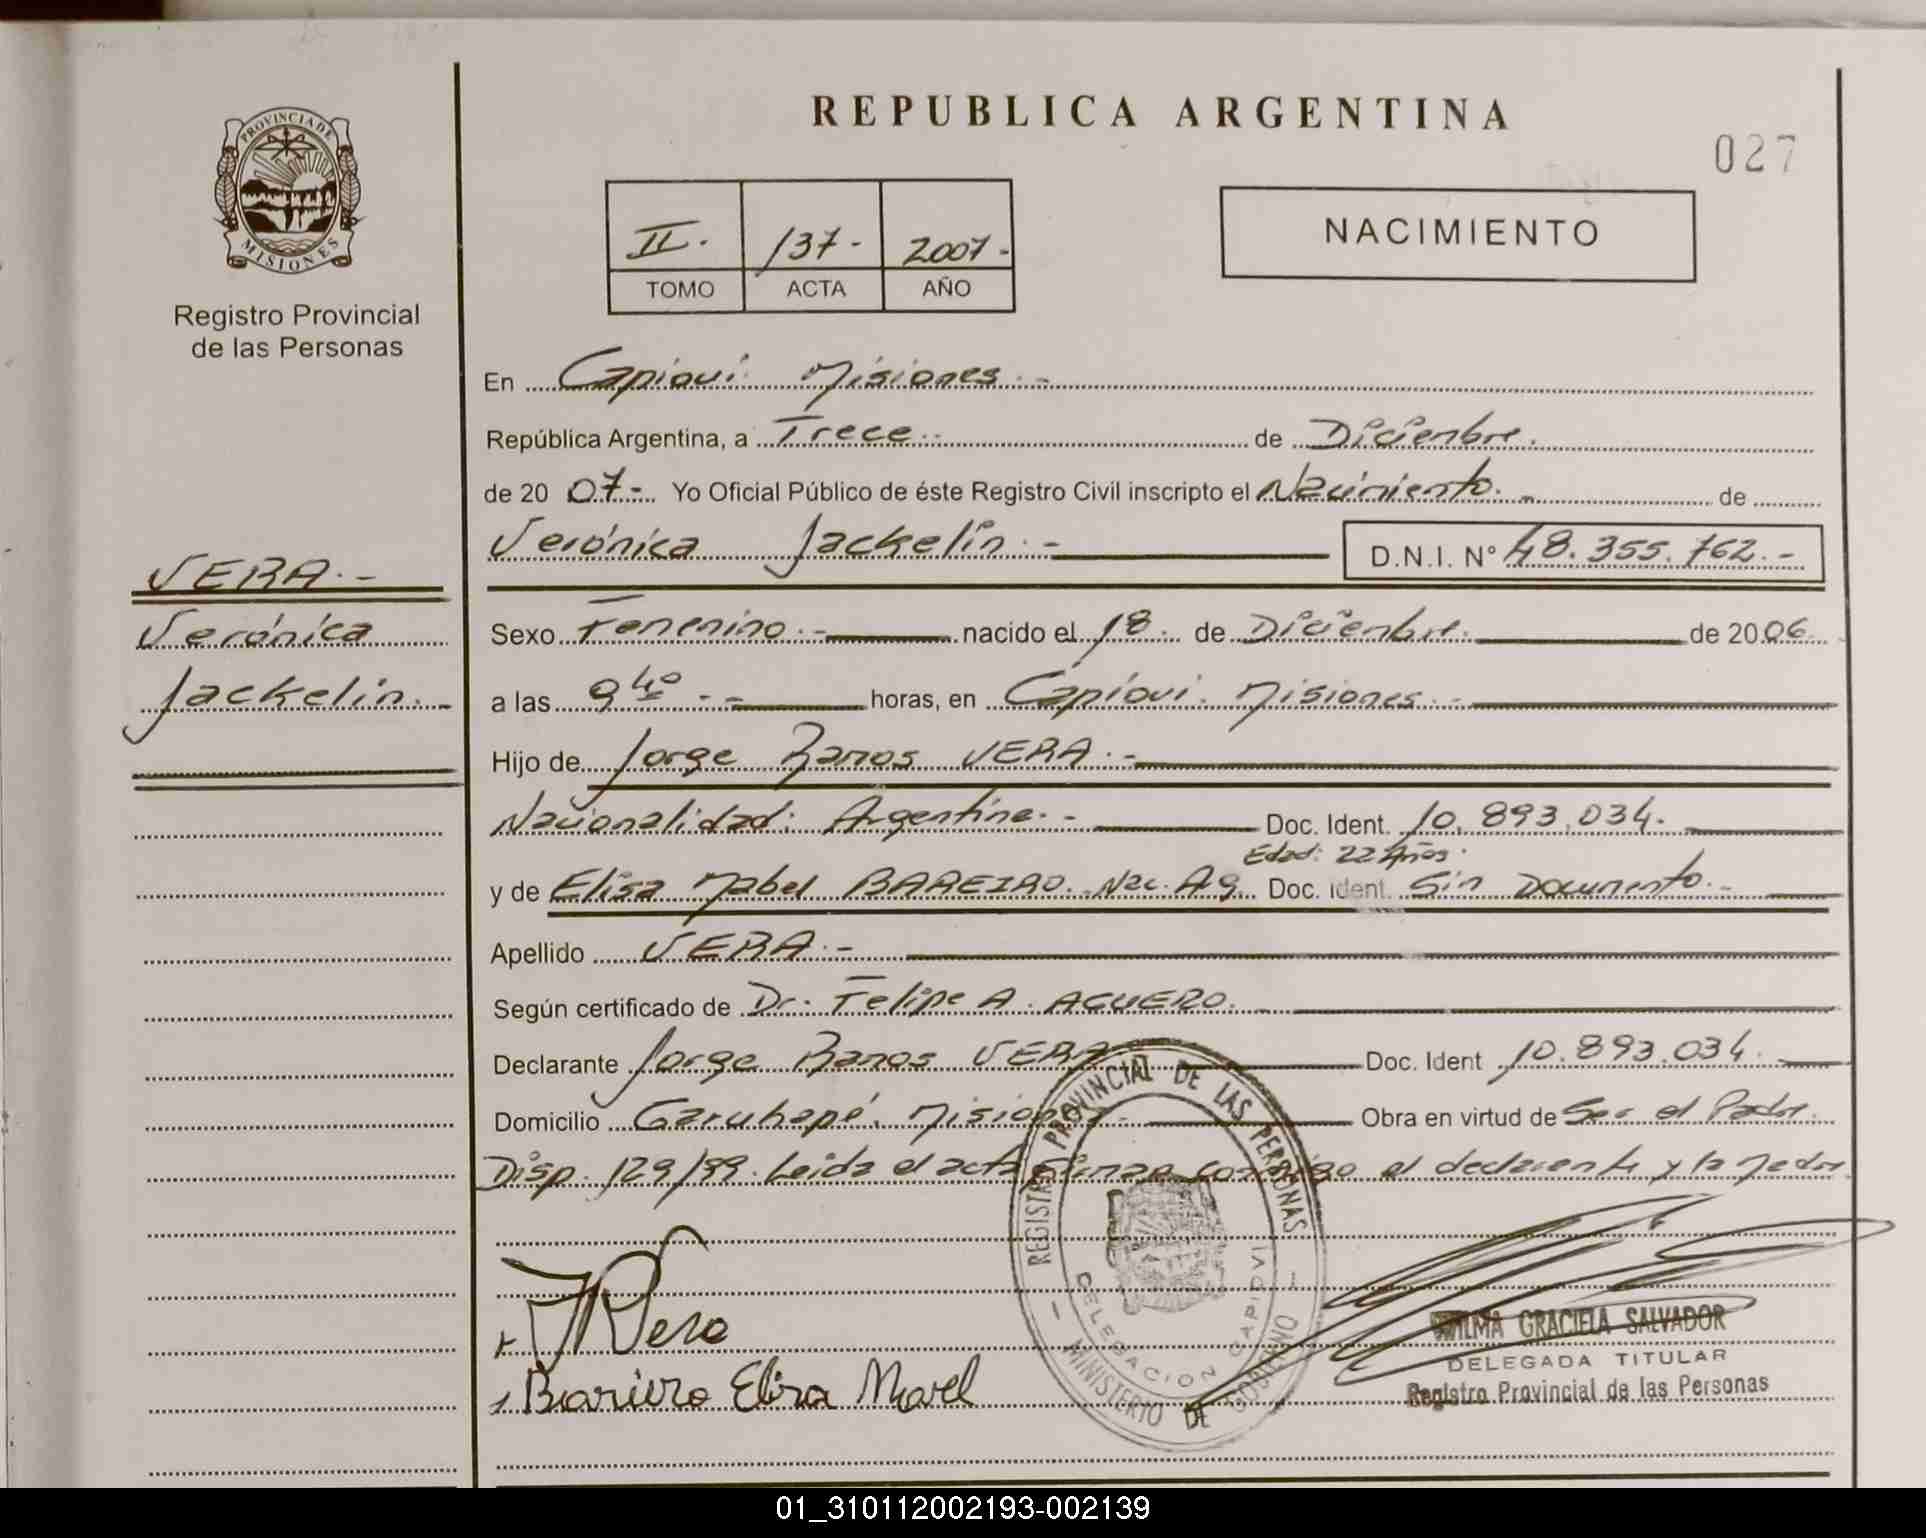 REPUBLICA ARGENTINA
027
PROVINCIA DE
MISIONES
Registro Provincial
de las Personas
II.- 137- 2007-
TOMO ACTA AÑO
NACIMIENTO
En Capioví Misiones.-
República Argentina, a Trece.- de Diciembre.
de 20 07- Yo Oficial Público de éste Registro Civil inscripto el Nacimiento.- de
Verónica Jackelin.- D.N.I. N° 48.355.762.-
VERA.-
Verónica
Jackelin.-
Sexo Femenino.- nacido el 18. de Diciembre. de 20 06.
a las 9 40.- horas, en Capioví. Misiones.-
Hijo de Jorge Ramos VERA.-
Nacionalidad: Argentina.- Doc. Ident. 10.893.034.-
Edad: 22 Años.
y de Elisa Mabel BAREIRO. Nac. Ag. Doc. Ident. Sin Documento.-
Apellido VERA.-
Según certificado de Dr. Felipe A. AGUERO.
Declarante Jorge Ramos VERA Doc. Ident 10.893.034.
Domicilio Garuhapé, Misiones.- Obra en virtud de Ser el Padre.
Disp. 129/99. Leida el acta firman conmigo el declarante y la Madre.
REGISTRO PROVINCIAL DE LAS PERSONAS
DELEGACION CAPIOVI
MINISTERIO DE GOBIERNO
JRVera
Bariero Elisa Mavel
WILMA GRACIELA SALVADOR
DELEGADA TITULAR
Registro Provincial de las Personas
01_310112002193-002139